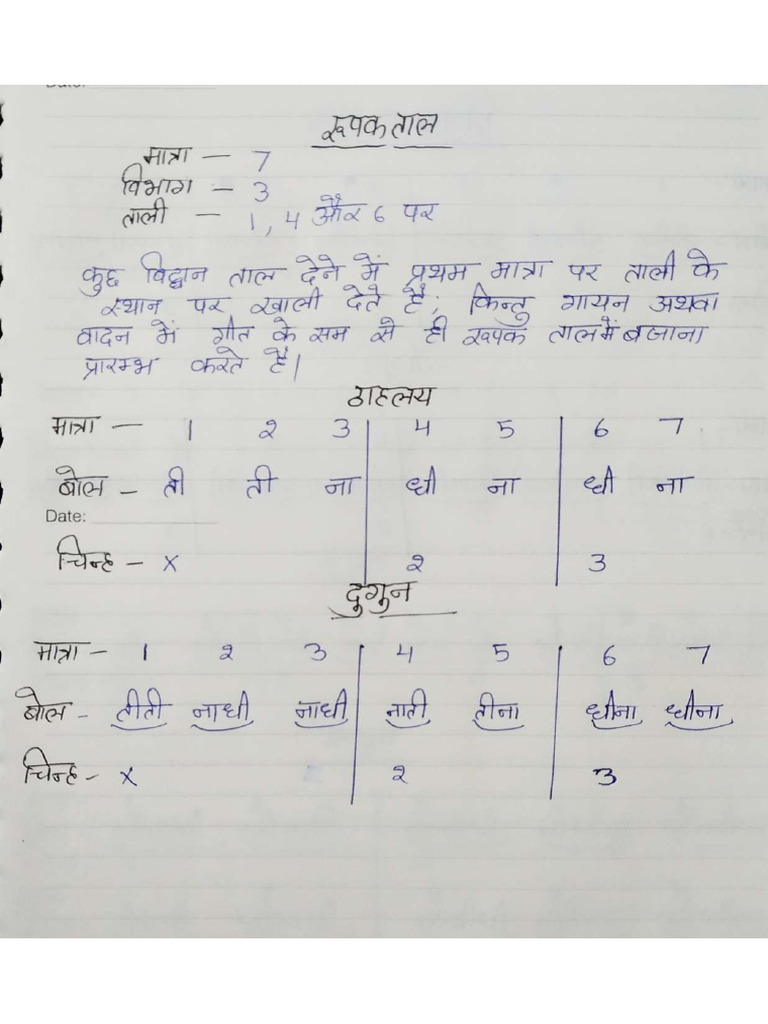 Date:
रूपक ताल
मात्रा – 7
विभाग – 3
ताली – 1, 4 और 6 पर
कुछ विद्वान ताल देने में प्रथम मात्रा पर ताली के
स्थान पर खाली देते है; किन्तु गायन अथवा
वादन में गीत के सम से ही रूपक ताल में बजाना
प्रारम्भ करते है।
ठाहलय
मात्रा – 1 २ 3 | 4 5 | 6 7
बोल – ती ती ना | धी ना | धी ना
Date:
चिन्ह – x २ 3
दुगुन
मात्रा – 1 २ 3 | 4 5 | 6 7
बोल – तीती नाधी नाधी | नाती तीना | धीना धीना
चिन्ह – x २ 3